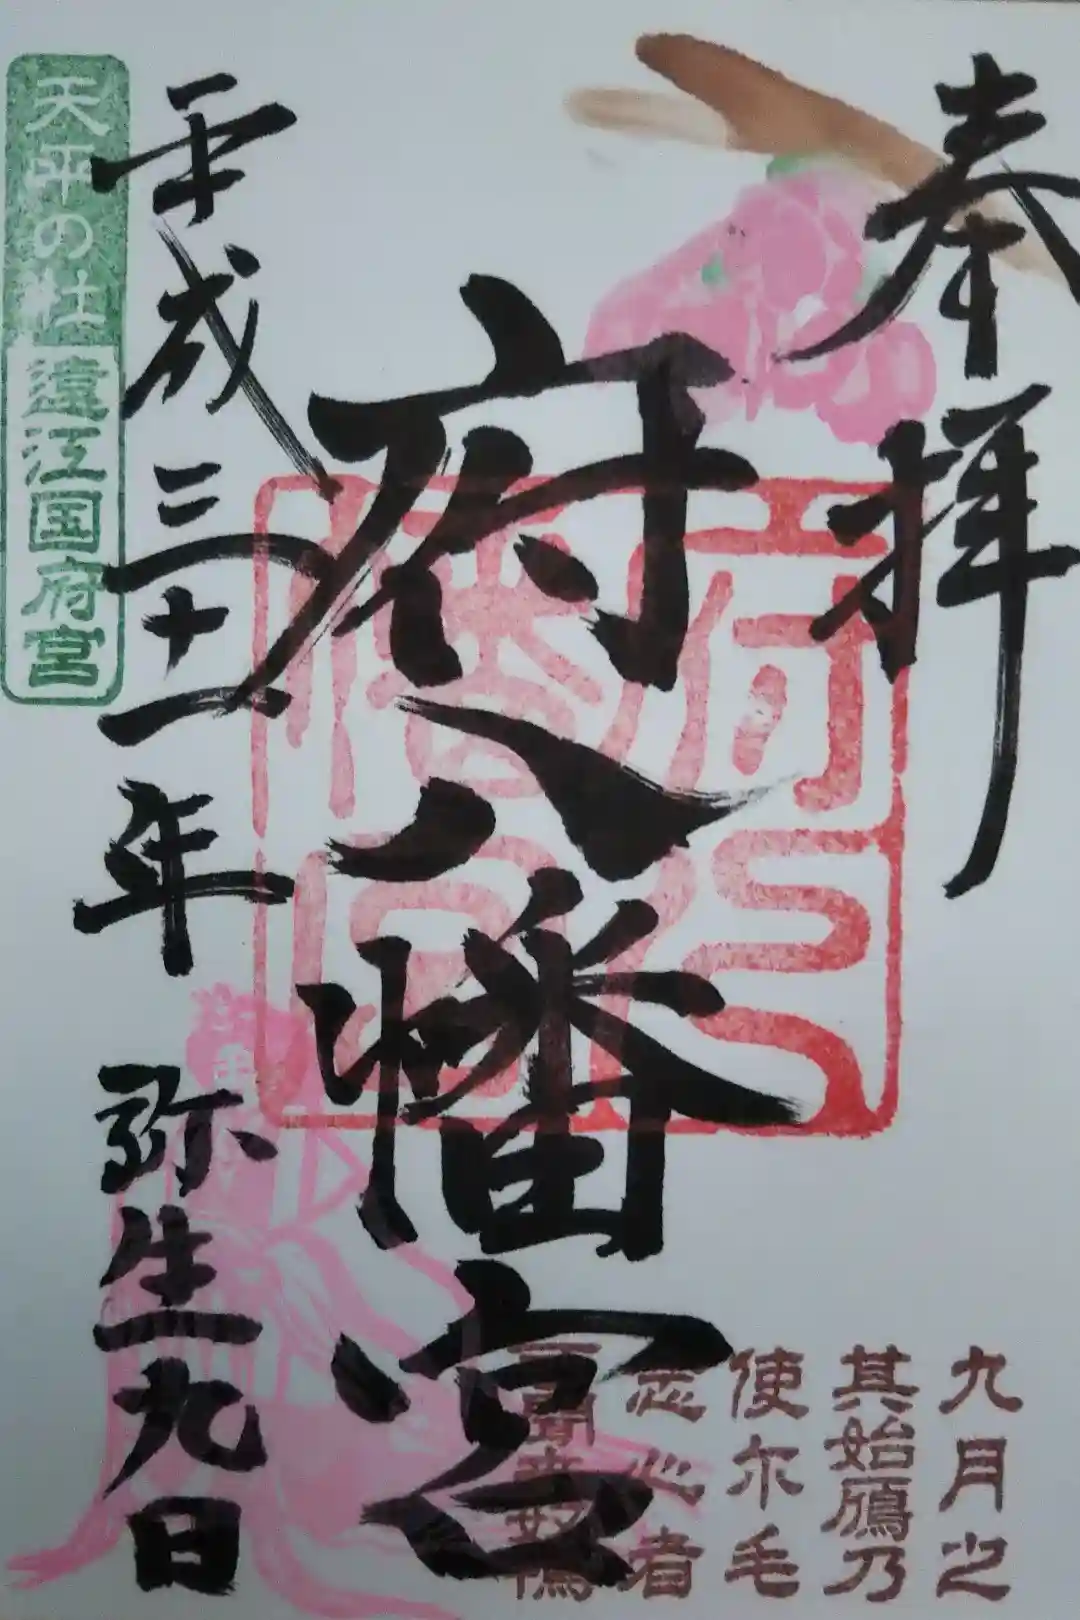 奉拝
府八幡宮
平成三十一年 弥生九日
天平の社 遠江国府宮
九月之
其始鴈乃
使尓毛
念心者
可聞来奴鴨